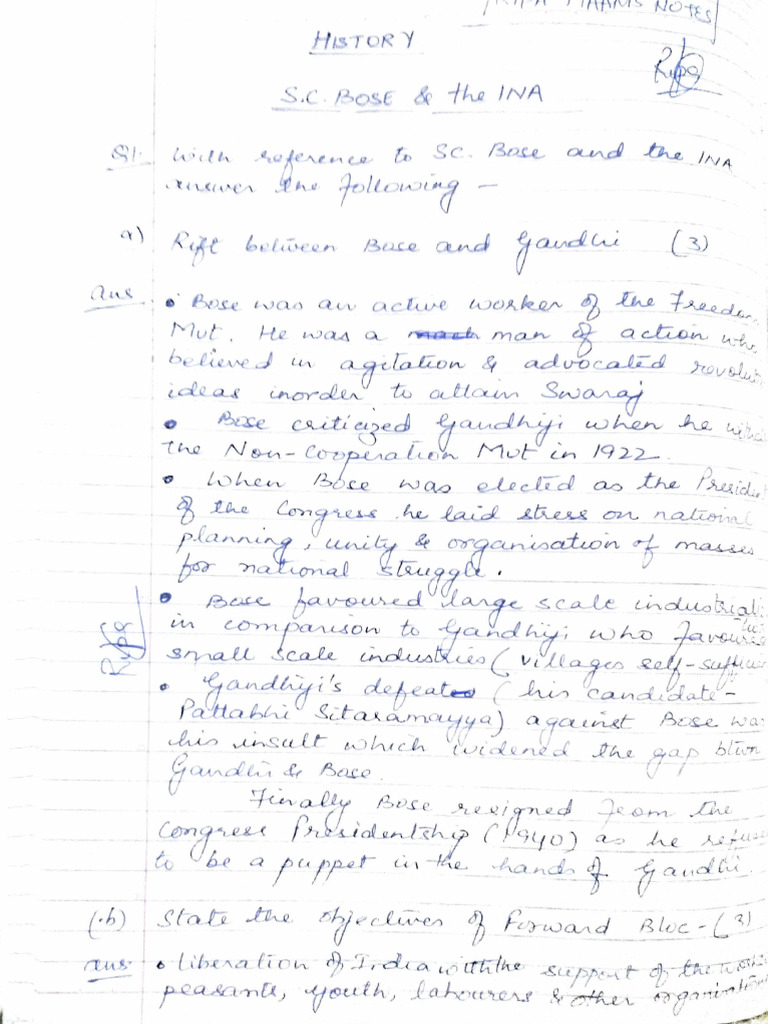 MAAMS NOTES
HISTORY
Rupa
S.C. BOSE & the INA
Q1. With reference to SC. Bose and the INA
answer the following —
a) Rift between Bose and Gandhi (3)
ans • Bose was an active worker of the Freedom
Mvt. He was a man of action who
believed in agitation & advocated
ideas inorder to attain Swaraj
• Bose criticized Gandhiji when he
the Non-Cooperation Mvt in 1922.
• When Bose was elected as the President
of the Congress he laid stress on national
planning, unity & organisation of masses
for national struggle.
• Bose favoured large scale
in comparison to Gandhiji who favoured
Rupa
small scale industries (villages
• Gandhiji's defeat (his candidate-
Pattabhi Sitaramayya) against Bose was
his insult which widened the gap btwn
Gandhi & Bose.
Finally Bose resigned from the
Congress Presidentship (1940) as he
to be a puppet in the hands of Gandhi.
(b) State the objectives of Forward Bloc - (3)
ans • liberation of India with the support of the
peasants, youth, labourers & other